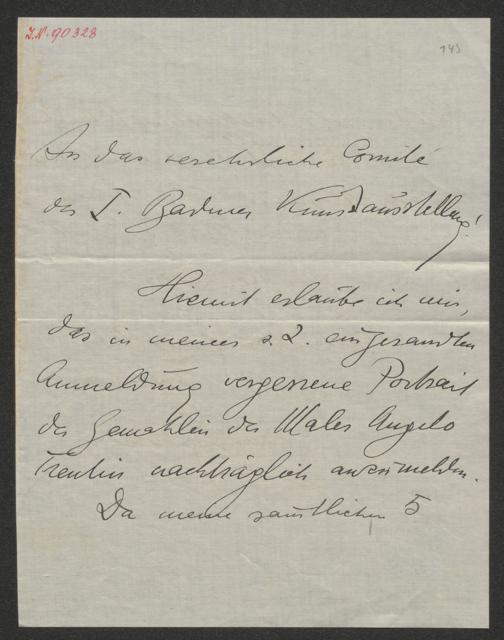 J.N. 90328
143
An das verehrliche Comité
der I. Badner Kunstausstellung!
Hiemit erlaube ich mir,
das in meiner s. Z. eingesandten
Anmeldung vergessene Portrait
der Gemahlin des Malers Angelo
Trentin nachträglich anzumelden.
Da meine sämtlichen 5